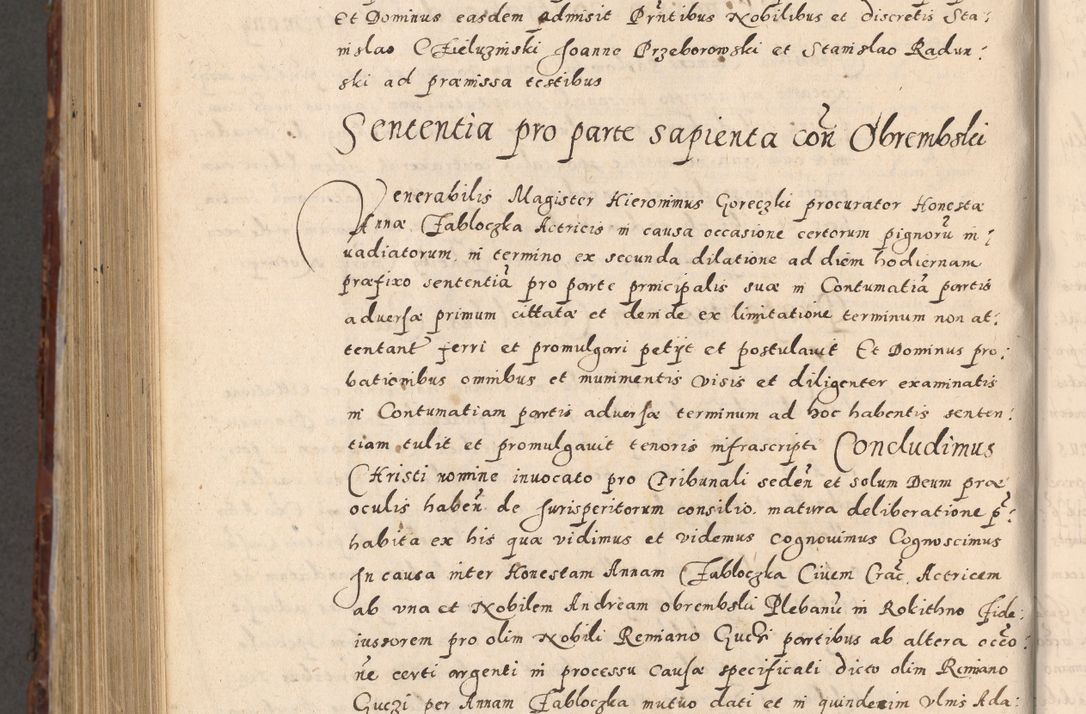 Et Dominus easdem admisit Prñtibus Nobilibus et discretis Sta:
nislao Cżieluzinski Joanne Przeborowski et Stanislao Radun:
ski ad præmissa testibus
Sententia pro parte sapienta coñ Obrembski
Venerabilis Magister Hieronimus Goreczki procurator Honestæ
Annæ Jabloczka Actricis in causa occasione certorum pignorũ in:
uadiatorum, in termino ex secunda dilatione ad diem hodiernam
præfixo sententiã pro parte principalis suæ in Contumatiã partis
aduersæ primum cittatæ et deinde ex limitatione terminum non at:
tentant ferri et promulgari petijt et postulauit Et Dominus pro:
bationibus omnibus et munimentis visis et diligenter examinatis
in Contumatiam partis aduersæ terminum ad hoc habentis senten:
tiam tulit et promulgauit tenoris infrascripti Concludimus
Christi nomine inuocato pro Tribunali sedeñ et solum Deum præ
oculis habeñ de Jurisperitorum consilio, matura deliberatione p̃:
habita ex his quæ vidimus et videmus cognouimus Cognoscimus
In causa inter Honestam Annam Jabloczka Ciuem Crac̃. Actricem
ab vna et Nobilem Andream obrembski Plebanũ in Rokithno fide:
iussorem pro olim Nobili Remiano Guczi partibus ab altera occõ
ne certi argenti in processu causæ specificati dicto olim Remiano
Guczi per Annam Jabloczka mutuo dati et in quindenim vlnis Ada: